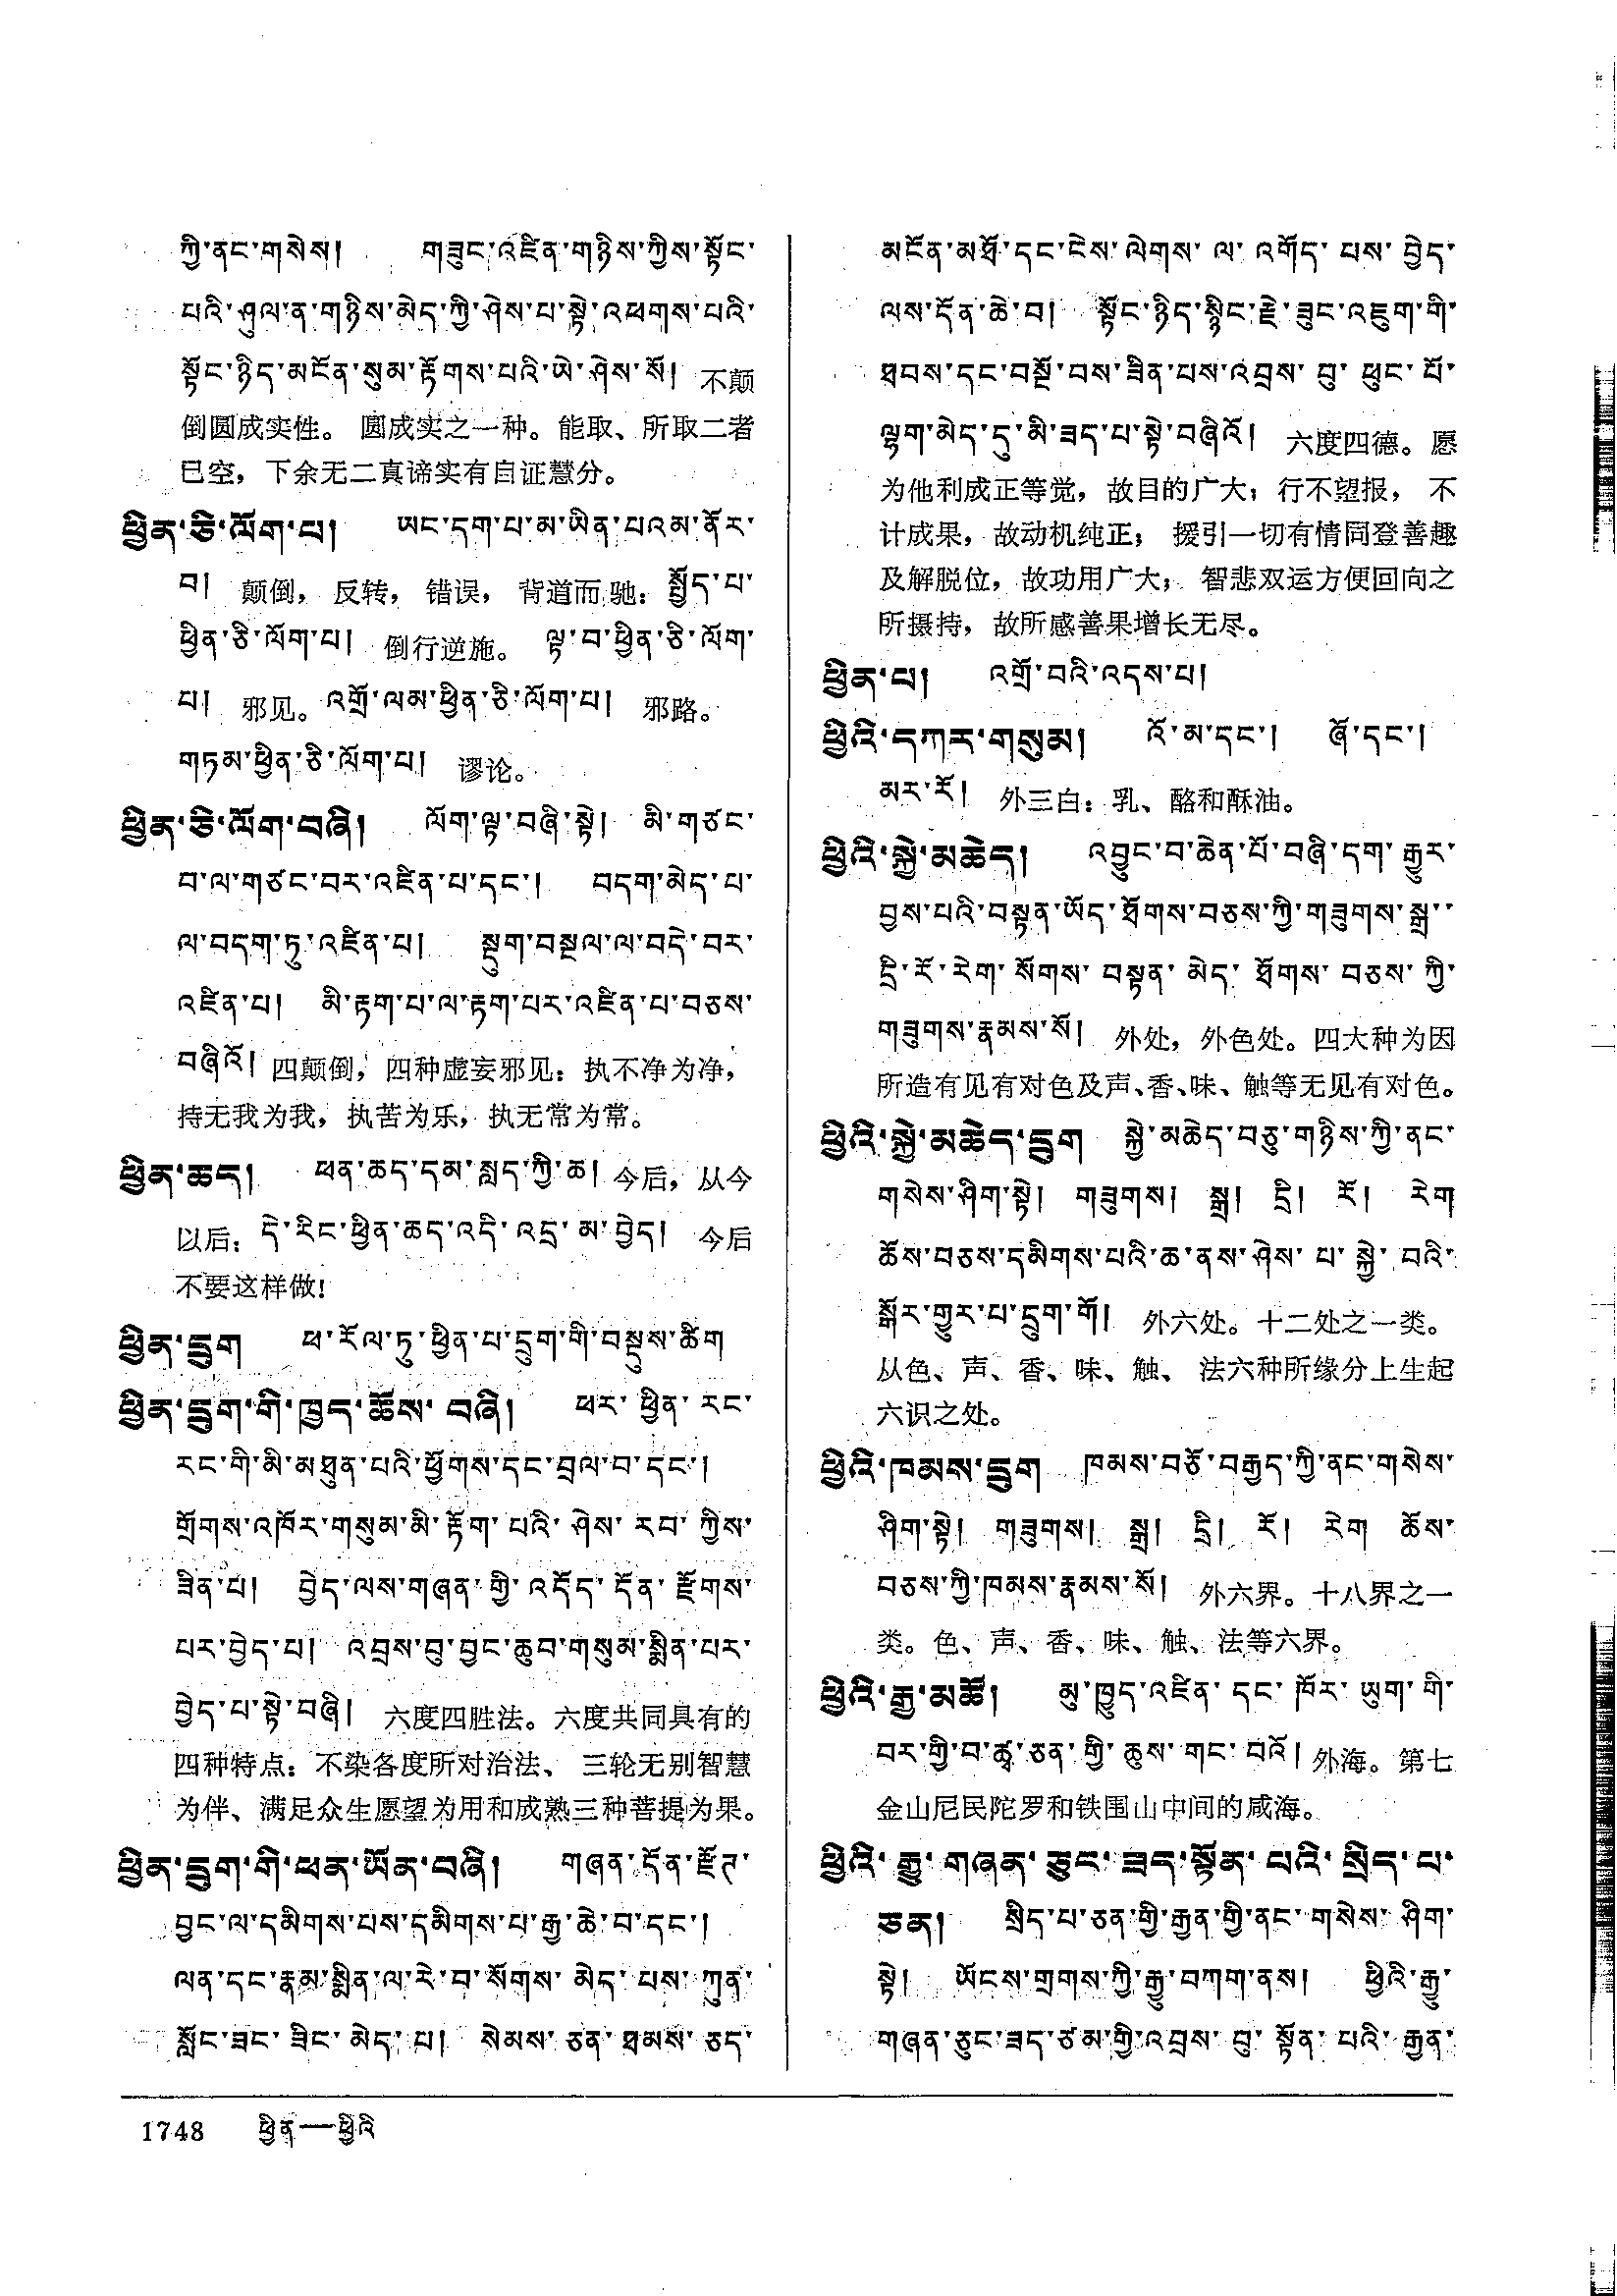 ཀྱི་ནང་གསེས། གཟུང་འཛིན་གཉིས་ཀྱིས་སྟོང་
པའི་ཤུལ་ན་གཉིས་མེད་ཀྱི་ཤེས་པ་སྟེ་འཕགས་པའི་
སྟོང་ཉིད་མངོན་སུམ་རྟོགས་པའི་ཨེ་ཤེས་སོ། 不颠
倒圆成实性。 圆成实之一种。能取、所取二者
已空，下余无二真谛实有自证慧分。
ཕྱིན་ཅི་ལོག་པ། ཡང་དག་པ་མ་ཡིན་པའམ་ནོར་
བ། 颠倒，反转，错误，背道而驰：སྤྱོད་པ་
ཕྱིན་ཅི་ལོག་པ། 倒行逆施。 ལྟ་བ་ཕྱིན་ཅི་ལོག་
པ། 邪见。འགྲོ་ལམ་ཕྱིན་ཅི་ལོག་པ། 邪路。
གཏམ་ཕྱིན་ཅི་ལོག་པ། 谬论。
ཕྱིན་ཅི་ལོག་བཞི། ལོག་ལྟ་བཞི་སྟེ། མི་གཙང་
བ་ལ་གཙང་བར་འཛིན་པ་དང་། བདག་མེད་པ་
ལ་བདག་ཏུ་འཛིན་པ། སྡུག་བསྔལ་ལ་བདེ་བར་
འཛིན་པ། མི་རྟག་པ་ལ་རྟག་པར་འཛིན་པ་བཅས་
བཞིའོ། 四颠倒，四种虚妄邪见：执不净为净，
持无我为我，执苦为乐，执无常为常。
ཕྱིན་ཆད། ཕན་ཆད་དམ་སླད་ཀྱི་ཆ། 今后，从今
以后：དེ་རིང་ཕྱིན་ཆད་འདི་འདྲ་མ་བྱེད། 今后
不要这样做！
ཕྱིན་དྲུག ཕ་རོལ་ཏུ་ཕྱིན་པ་དྲུག་གི་བསྡུས་ཚིག
ཕྱིན་དྲུག་གི་ཁྱད་ཆོས་བཞི། ཕར་ཕྱིན་རང་
རང་གི་མི་མཐུན་པའི་ཕྱོགས་དང་བྲལ་བ་དང་།
གྲོགས་འཁོར་གསུམ་མི་རྟོག་པའི་ཤེས་རབ་ཀྱིས་
ཟིན་པ། བྱེད་ལས་གཞན་གྱི་འདོད་དོན་རྫོགས་
པར་བྱེད་པ། འབྲས་བུ་བྱང་ཆུབ་གསུམ་སྨིན་པར་
བྱེད་པ་སྟེ་བཞི། 六度四胜法。六度共同具有的
四种特点：不染各度所对治法、 三轮无别智慧
为伴、满足众生愿望为用和成熟三种菩提为果。
ཕྱིན་དྲུག་གི་ཕན་ཡོན་བཞི། གཞན་དོན་རྫོཊ་
བྱང་ལ་དམིགས་པས་དམིགས་པ་རྒྱ་ཆེ་བ་དང་།
ལན་དང་རྣམ་སྨིན་ལ་རེ་བ་སོགས་མེད་པས་ཀུན་
སློང་ཟང་ཟིང་མེད་པ། སེམས་ཅན་ཐམས་ཅད་
མངོན་མཐོ་དང་ངེས་ལེགས་ལ་འགོད་པས་བྱེད་
ལས་དོན་ཆེ་བ། སྟོང་ཉིད་སྙིང་རྗེ་ཟུང་འཇུག་གི་
ཐབས་དང་བསྔོ་བས་ཟིན་པས་འབྲས་བུ་ཕུང་པོ་
ལྷག་མེད་དུ་མི་ཟད་པ་སྟེ་བཞིའོ། 六度四德。愿
为他利成正等觉，故目的广大；行不望报， 不
计成果，故动机纯正； 援引一切有情同登善趣
及解脱位，故功用广大； 智悲双运方便回向之
所摄持，故所感善果增长无尽。
ཕྱིན་པ། འགྲོ་བའི་འདས་པ།
ཕྱིའི་དཀར་གསུམ། འོ་མ་དང་། ཞོ་དང་།
མར་རོ། 外三白：乳、酪和酥油。
ཕྱིའི་སྐྱེ་མཆེད། འབྱུང་བ་ཆེན་པོ་བཞི་དག་རྒྱུར་
བྱས་པའི་བསྟན་ཡོད་ཐོགས་བཅས་ཀྱི་གཟུགས་སྒྲ་་
དྲི་རོ་རེག་སོགས་བསྟན་མེད་ཐོགས་བཅས་ཀྱི་
གཟུགས་རྣམས་སོ། 外处，外色处。四大种为因
所造有见有对色及声、香、味、触等无见有对色。
ཕྱིའི་སྐྱེ་མཆེད་དྲུག སྐྱེ་མཆེད་བཅུ་གཉིས་ཀྱི་ནང་
གསེས་ཤིག་སྟེ། གཟུགས། སྒྲ། དྲི། རོ། རེག
ཆོས་བཅས་དམིགས་པའི་ཆ་ནས་ཤེས་པ་སྐྱེ་བའི་
སྒོར་གྱུར་པ་དྲུག་གོ། 外六处。十二处之一类。
从色、声、香、味、触、 法六种所缘分上生起
六识之处。
ཕྱིའི་ཁམས་དྲུག ཁམས་བཅོ་བརྒྱད་ཀྱི་ནང་གསེས་
ཤིག་སྟེ། གཟུགས། སྒྲ། དྲི། རོ། རེག ཆོས་
བཅས་ཀྱི་ཁམས་རྣམས་སོ། 外六界。十八界之一
类。色、声、香、味、触、法等六界。
ཕྱིའི་རྒྱ་མཚོ། མུ་ཁྱུད་འཛིན་དང་ཁོར་ཡུག་གི་
བར་གྱི་བ་ཚྭ་ཅན་གྱི་ཆུས་གང་བའོ། 外海。第七
金山尼民陀罗和铁围山中间的咸海。
ཕྱིའི་རྒྱུ་གཞན་ཅུང་ཟད་སྟོན་པའི་སྲིད་པ་
ཅན། སྲིད་པ་ཅན་གྱི་རྒྱན་གྱི་ནང་གསེས་ཤིག་
སྟེ། ཡོངས་གྲགས་ཀྱི་རྒྱུ་བཀག་ནས། ཕྱིའི་རྒྱུ་
གཞན་ཅུང་ཟད་ཙམ་གྱི་འབྲས་བུ་སྟོན་པའི་རྒྱན་
1748 ཕྱིན—ཕྱིའི